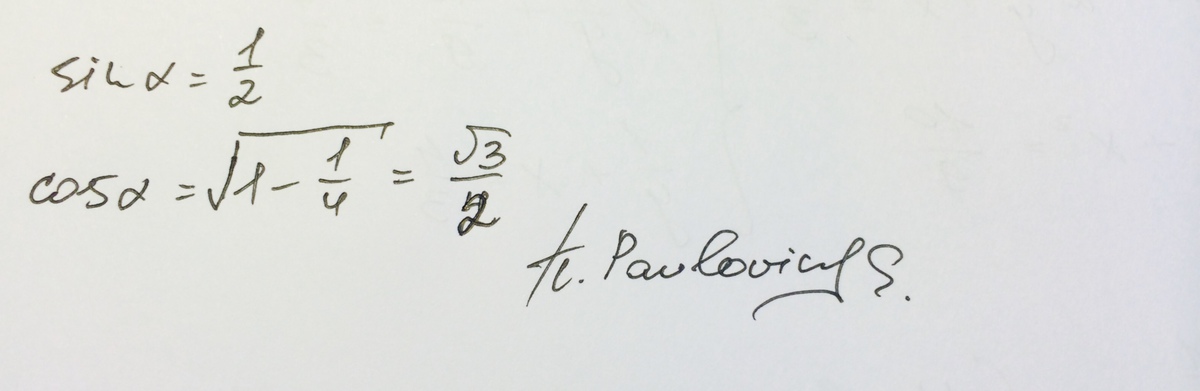 sin α = 1/2
cos α = √(1 - 1/4) = √3/2
Pavlovich S.